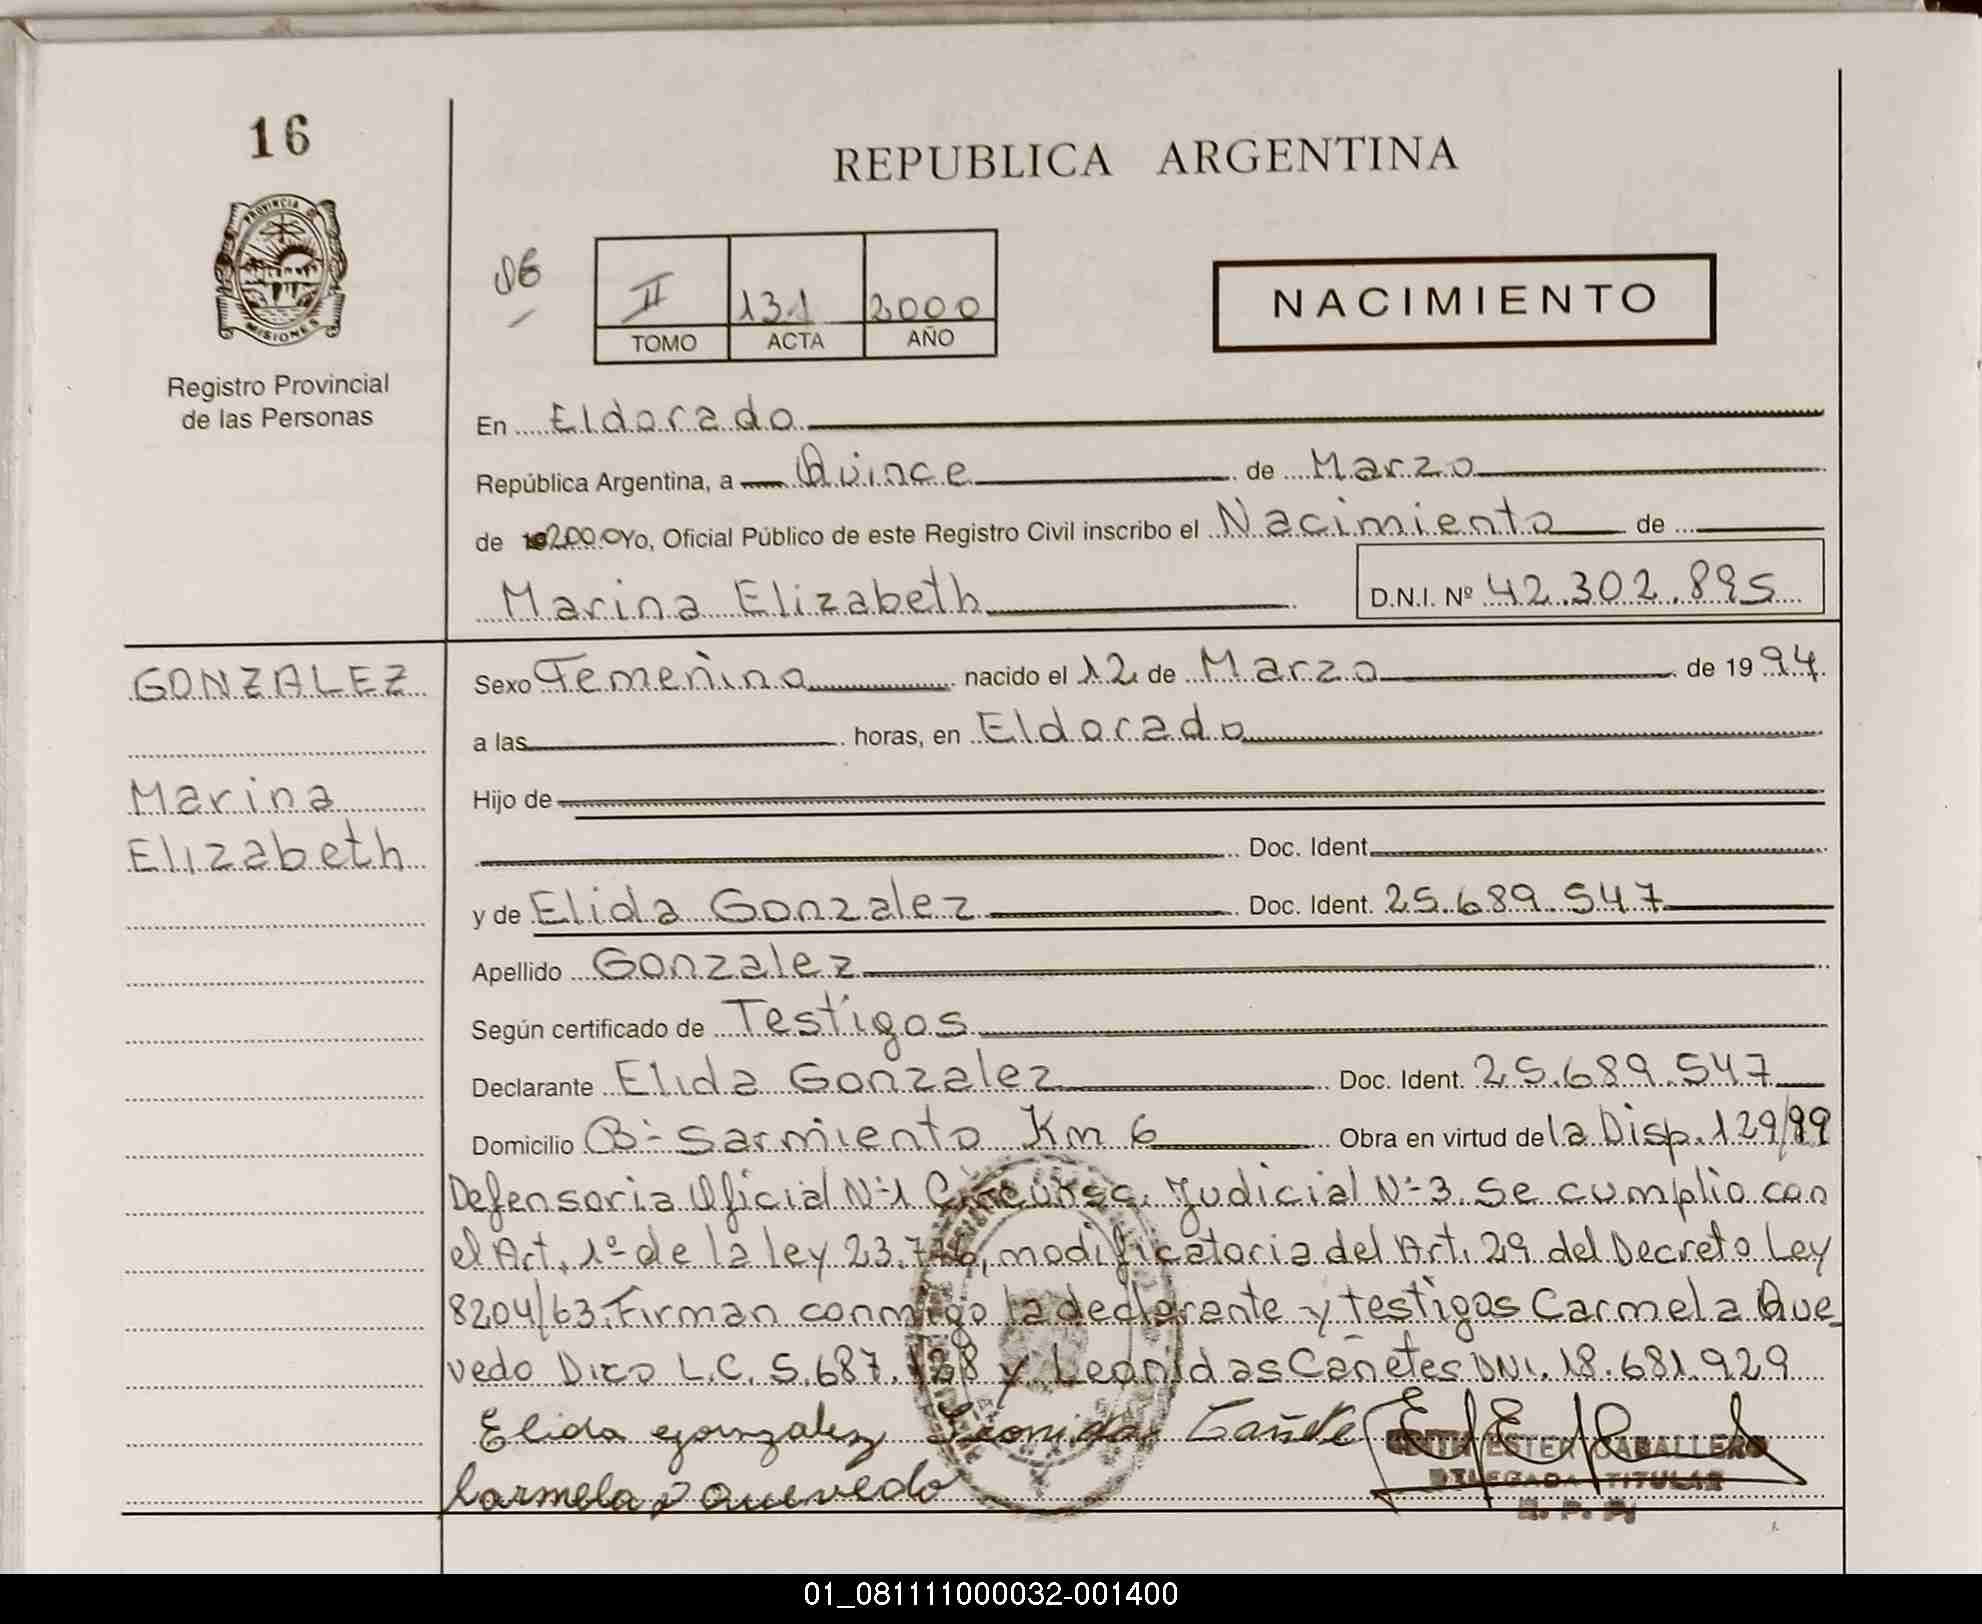 16
PROVINCIA D
MISIONES
Registro Provincial
de las Personas
REPUBLICA ARGENTINA
II 131 2000
TOMO ACTA AÑO
NACIMIENTO
En Eldorado
República Argentina, a Quince de Marzo
de 2000 Yo, Oficial Público de este Registro Civil inscribo el Nacimiento de
Marina Elizabeth D.N.I. Nº 42.302.895
GONZALEZ
Marina
Elizabeth
Sexo Femenino nacido el 12 de Marzo de 1994
a las horas, en Eldorado
Hijo de
Doc. Ident.
y de Elida Gonzalez Doc. Ident. 25.689.547
Apellido Gonzalez
Según certificado de Testigos
Declarante Elida Gonzalez Doc. Ident. 25.689.547
Domicilio Bº Sarmiento Km 6 Obra en virtud de la Disp. 129/99
Defensoria Oficial Nº1 Judicial Nº 3. Se cumplio con
el Art. 1º de la ley 23.776, modificatoria del Art. 29 del Decreto Ley
8204/63. Firman conmigo la declarante y testigos Carmela Que
vedo Dico L.C. 5.687.128 y Leonidas Cañetes DNI. 18.681.929
Elida gonzalez Leonidas Cañete
Carmela D Quevedo
EDITH ESTER CABALLERO
DELEGADA TITULAR
R. P. P.
01_081111000032-001400